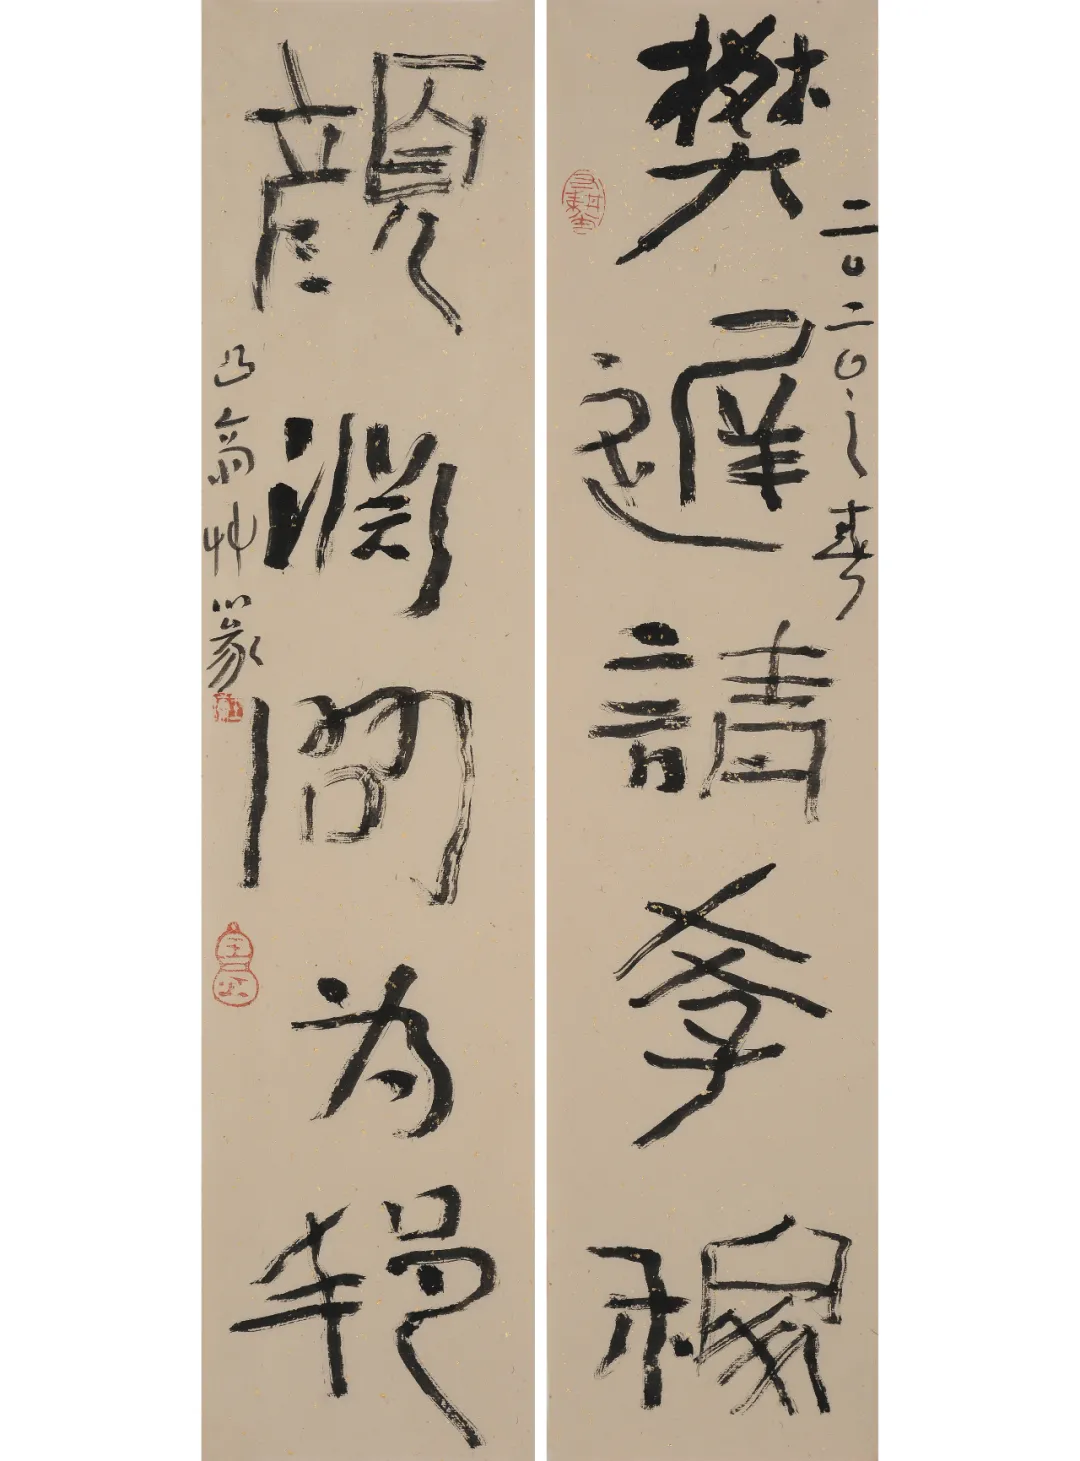 樊遲請學稼
二〇二〇之春
顏淵問为邦
翁艸篆